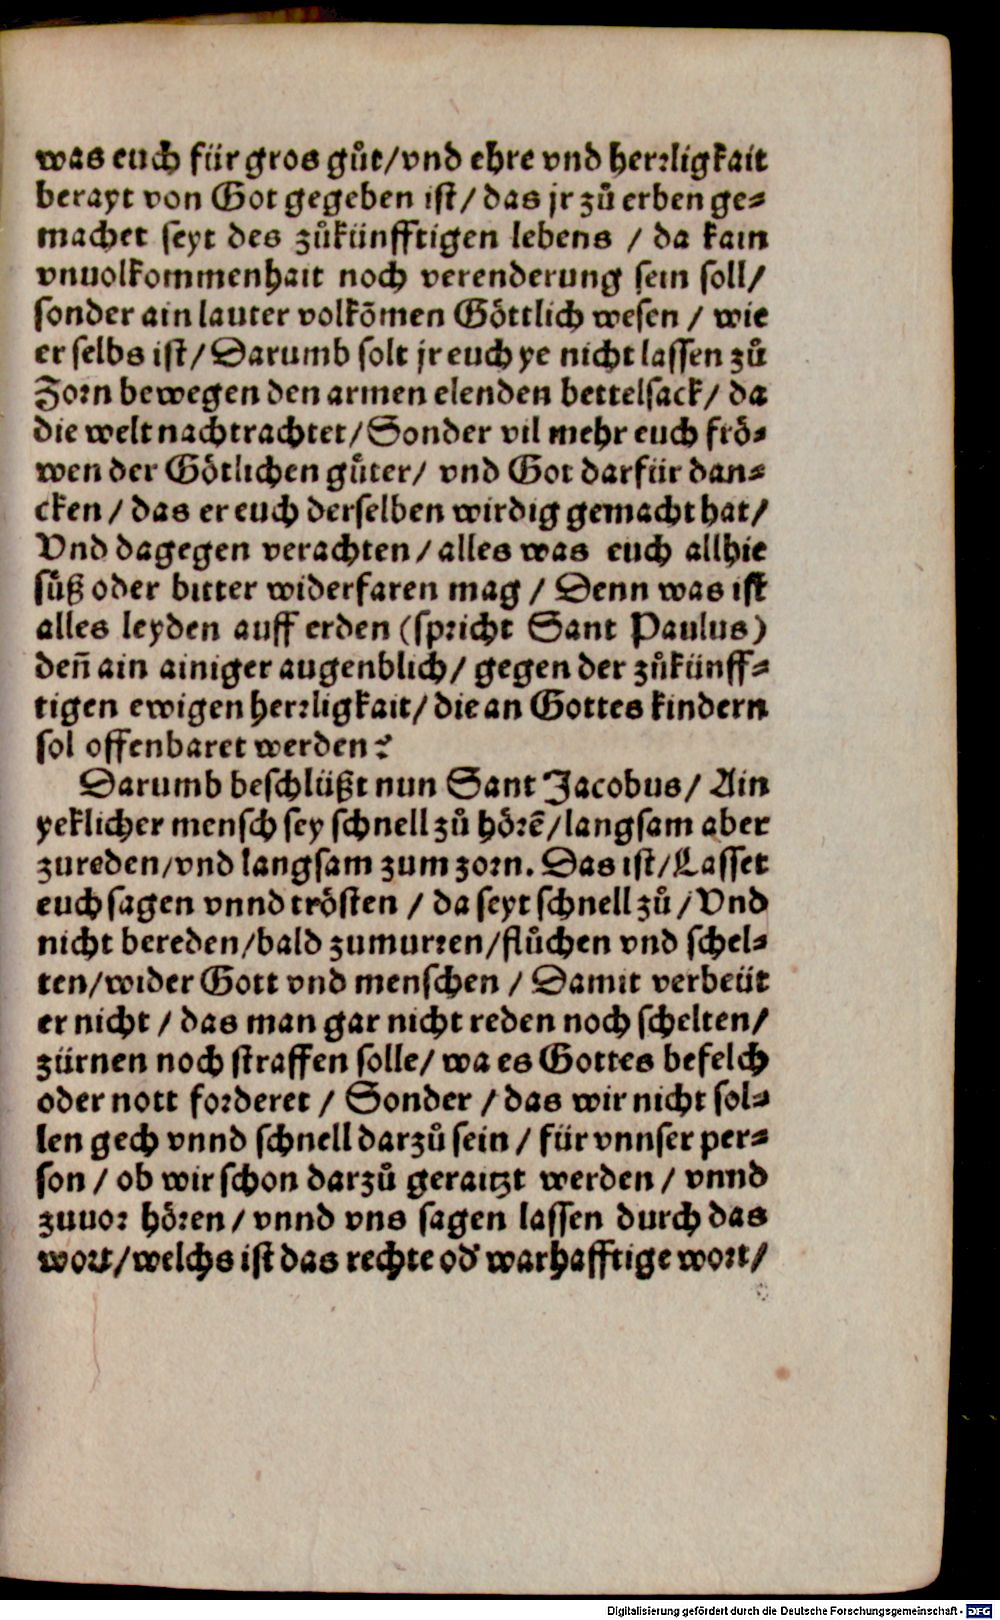 was euch für gros gůt/vnd ehre vnd herꝛligkait
berayt von Got gegeben ist/ das jr zů erben ge⸗
machet seyt des zůkünfftigen lebens / da kain
vnuolkommenhait noch verenderung sein soll/
sonder ain lauter volkõmen Göttlich wesen / wie
er selbs ist/ Darumb solt jr euch ye nicht lassen zů
Zoꝛn bewegen den armen elenden bettelsack/ da
die welt nachtrachtet/ Sonder vil mehr euch frö⸗
wen der Götlichen gůter/ vnd Got darfür dan⸗
cken / das er euch derselben wirdig gemacht hat/
Vnd dagegen verachten / alles was euch allhie
sůß oder bitter widerfaren mag / Denn was ist
alles leyden auff erden (spꝛicht Sant Paulus)
deñ ain ainiger augenblich/ gegen der zůkünff⸗
tigen ewigen herꝛligkait/ die an Gottes kindern
sol offenbaret werden?
Darumb beschlüßt nun Sant Jacobus/ Ain
yeklicher mensch sey schnell zů höꝛẽ/langsam aber
zureden/vnd langsam zum zoꝛn. Das ist/ Lasset
euch sagen vnnd trösten / da seyt schnell zů / Vnd
nicht bereden/bald zumurꝛen/flůchen vnd schel⸗
ten/wider Gott vnd menschen / Damit verbeüt
er nicht / das man gar nicht reden noch schelten/
zürnen noch straffen solle/ wa es Gottes befelch
oder nott foꝛderet / Sonder / das wir nicht sol⸗
len gech vnnd schnell darzů sein / für vnnser per⸗
son / ob wir schon darzů geraitzt werden / vnnd
zuuoꝛ höꝛen / vnnd vns sagen lassen durch das
woꝛt/welchs ist das rechte od' warhafftige woꝛt/
Digitalisierung gefördert durch die Deutsche Forschungsgemeinschaft - DFG